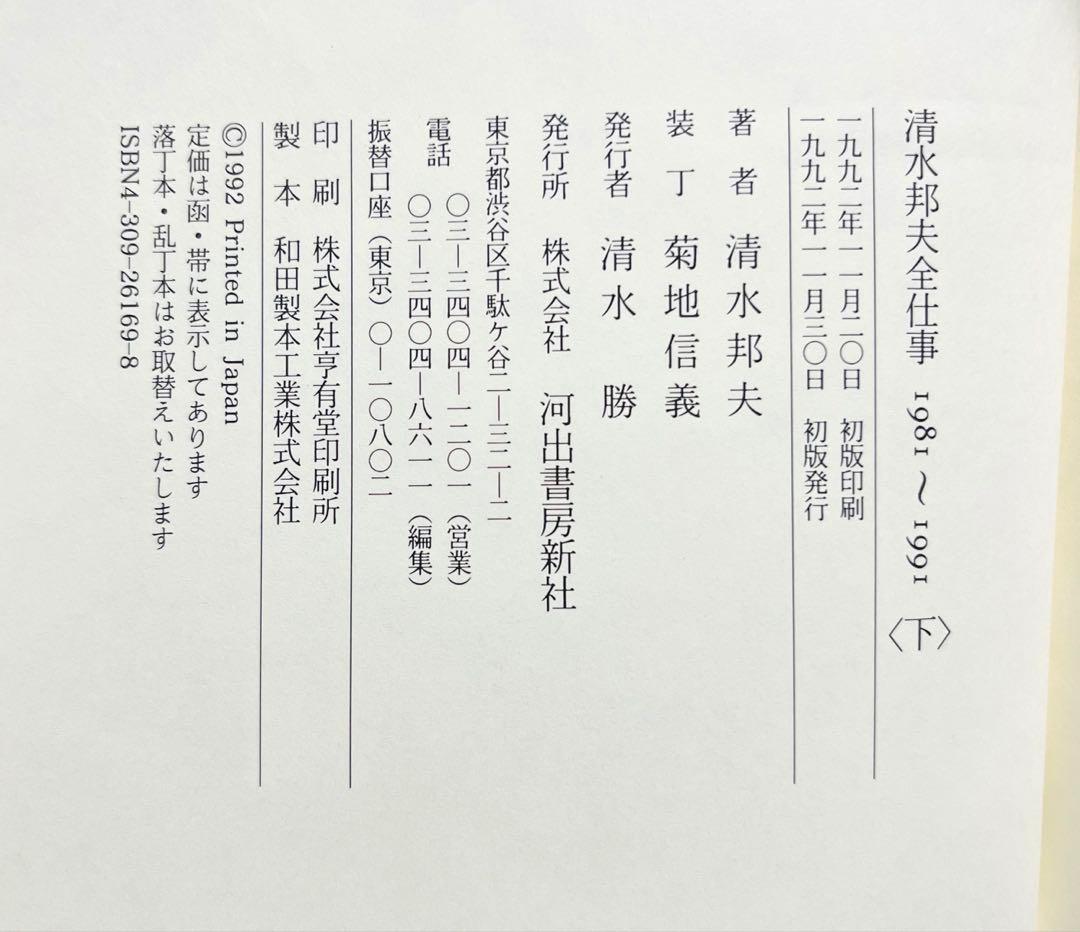 清水邦夫全仕事 1981〜1991〈下〉
一九九二年一一月二〇日 初版印刷
一九九二年一一月三〇日 初版発行
著者 清水邦夫
装丁 菊地信義
発行者 清水勝
発行所 株式会社 河出書房新社
東京都渋谷区千駄ケ谷二―三二―二
電話 〇三―三四〇四―一二〇一(営業)
〇三―三四〇四―八六一一(編集)
振替口座(東京)〇―一〇八〇二
印刷 株式会社亨有堂印刷所
製本 和田製本工業株式会社
©1992 Printed in Japan
定価は函・帯に表示してあります
落丁本・乱丁本はお取替えいたします
ISBN4-309-26169-8